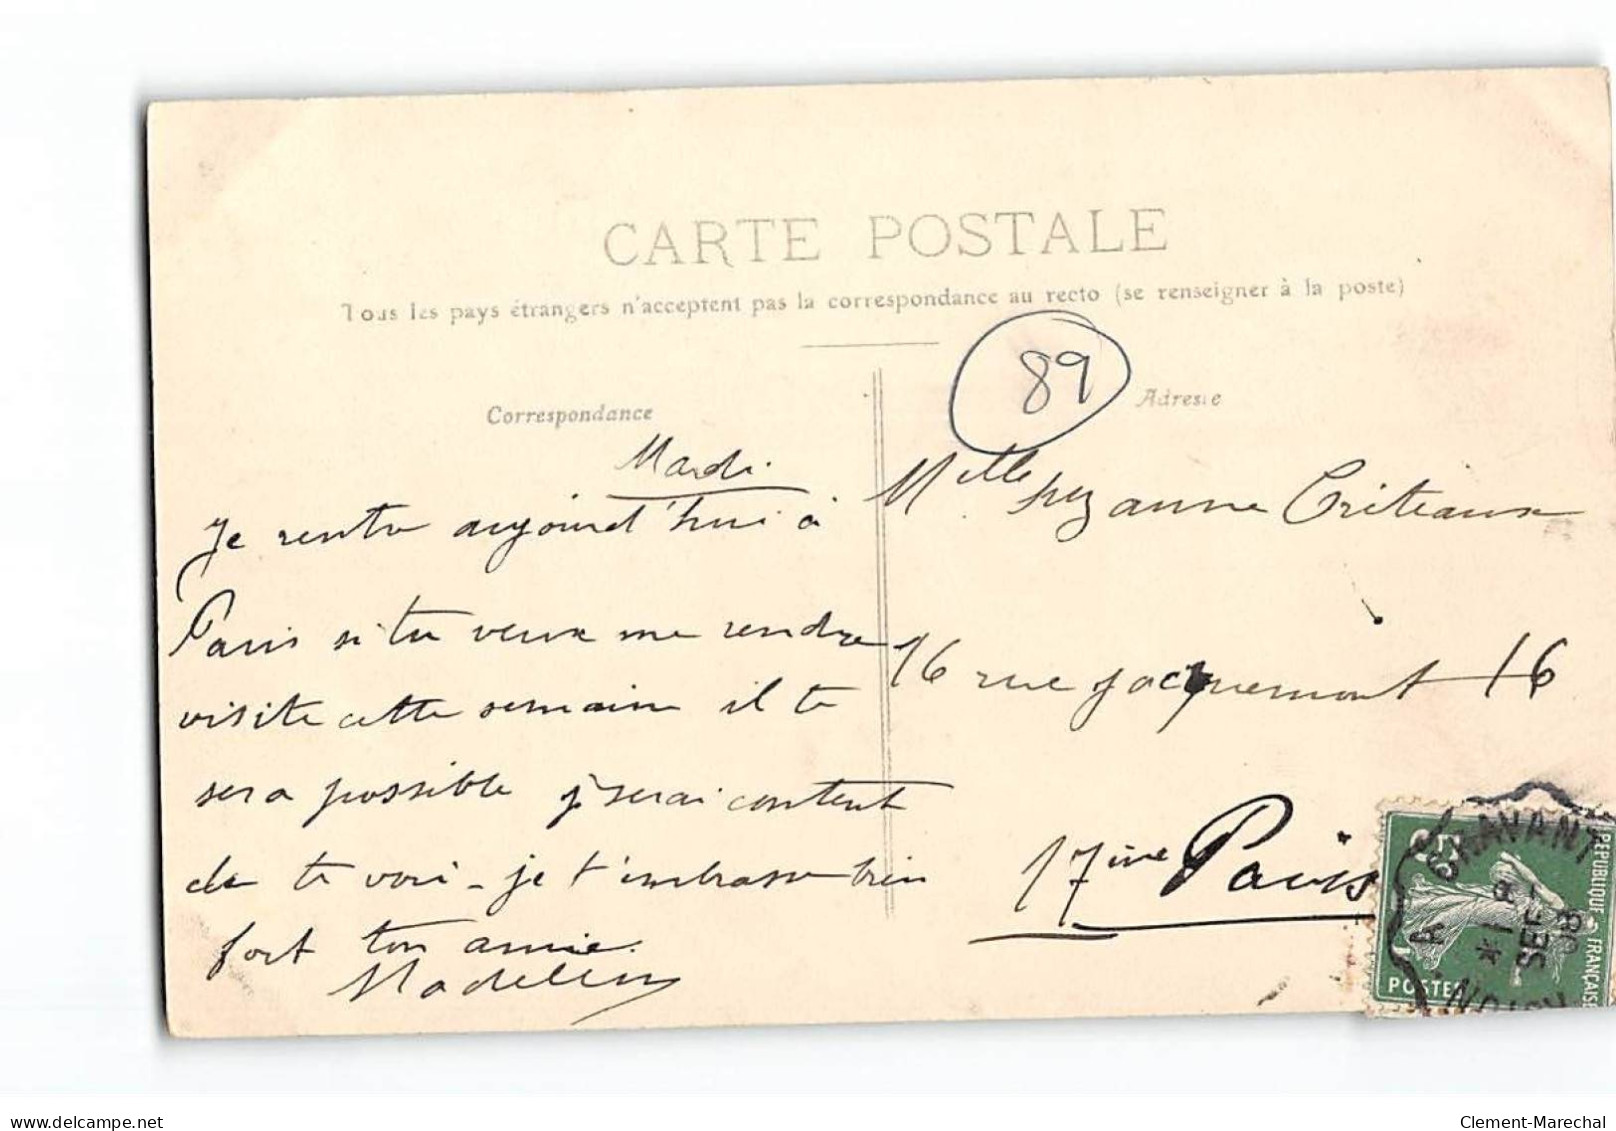 CARTE POSTALE
Tous les pays étrangers n'acceptent pas la correspondance au recto (se renseigner à la poste)
89
Correspondance
Adresse
Mardi
Je rentre aujourd'hui à
Paris si tu veux me rendre
visite cette semaine il te
sera possible j'serai content
de te voir - je t'embrasse bien
fort ton amie.
Madeleine
Melle Suzanne Criteaux
16 rue Jacquemont 16
17ème Paris
REPUBLIQUE FRANÇAISE
POSTES
5
A GRAVANT
*1 8
SEPT
08